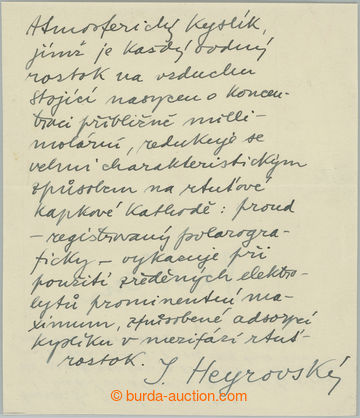 Atmosferický kyslík,
jímž je každý vodný
roztok na vzduchu
stojící nasycen o koncen-
traci přibližně milli-
molární, redukuje se
velmi charakteristickým
způsobem na rtuťové
kapkové kathodě: proud
– registrovaný polarogra-
ficky – vykazuje při
použití zředěných elektro-
lytů prominentní ma-
ximum, způsobené adsorpcí
kyslíku v mezifázi rtuť-
roztok.
J. Heyrovský
© burda-auction.com